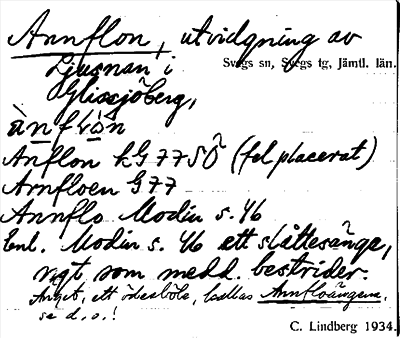 Annflon, utvidgning av
Ljusnan i
Svegs sn, Svegs tg, Jämtl. län.
Glissjöberg,
Anflon kG 77 SÖ (fel placerat)
Arnfloen G 77
Annflo Modin s. 46
Enl. Modin s. 46 ett slåttesänge,
vigt som medd. bestrider.
ett ödesböle, kallas Annfloängarna.
se d. o.!
C. Lindberg 1934.